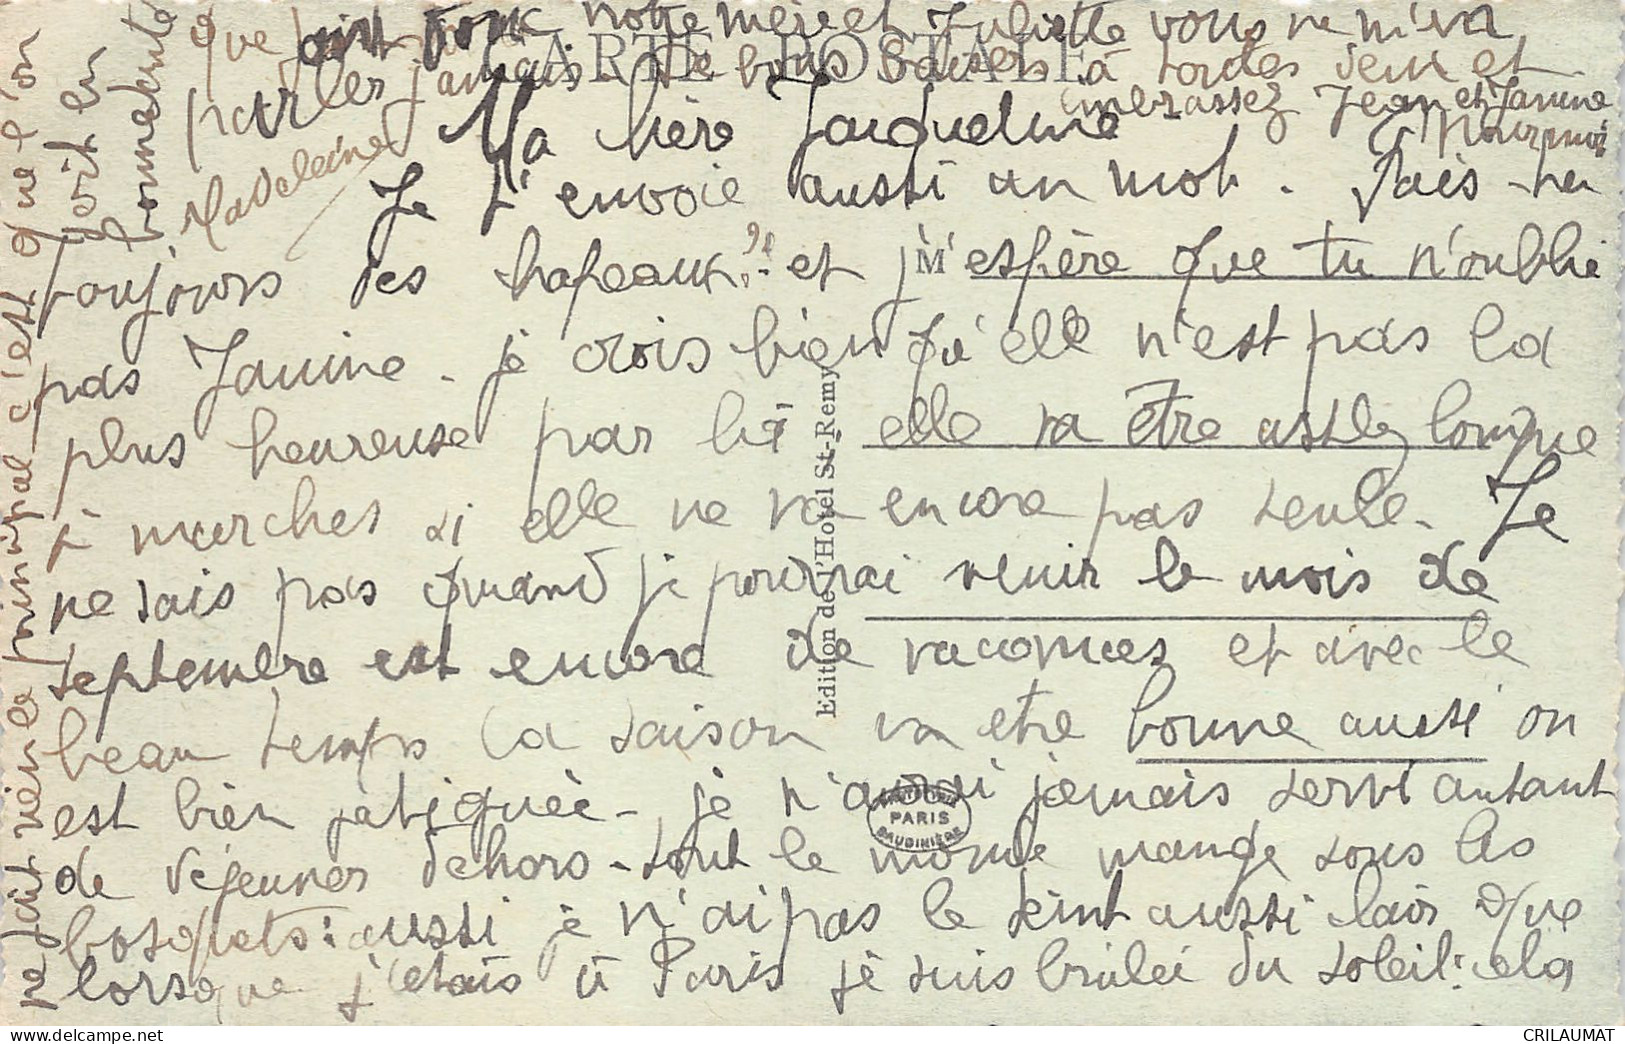 CARTE POSTALE
Ma chère Jacqueline
Je t'envoie aussi un mot. Fais-tu
toujours des chapeaux? et j'espère que tu n'oublie
pas Janine. je crois bien qu'elle n'est pas la
plus heureuse par là elle va être assez longue
à marcher si elle ne va encore pas seule. Je
ne sais pas quand je pourrai venir le mois de
septembre est encore de vacances et avec le
beau temps la saison va etre bonne aussi on
est bien fatiguée. je n'aurai jamais servi autant
de déjeuner dehors. tout le monde mange sous les
bosquets: aussi je n'ai pas le teint aussi clair que
lorsque j'étais à Paris je suis brûlée du soleil: cela
ne fait rien le principal c'est que l'on
soit en
bonne santé
que font donc notre mère et Juliette vous ne m'en
parlez jamais. de bons baisers à toutes deux et
embrassez Jean et Janine
pour moi
Madeleine
M
Edition de l'Hotel St-Remy
PARIS